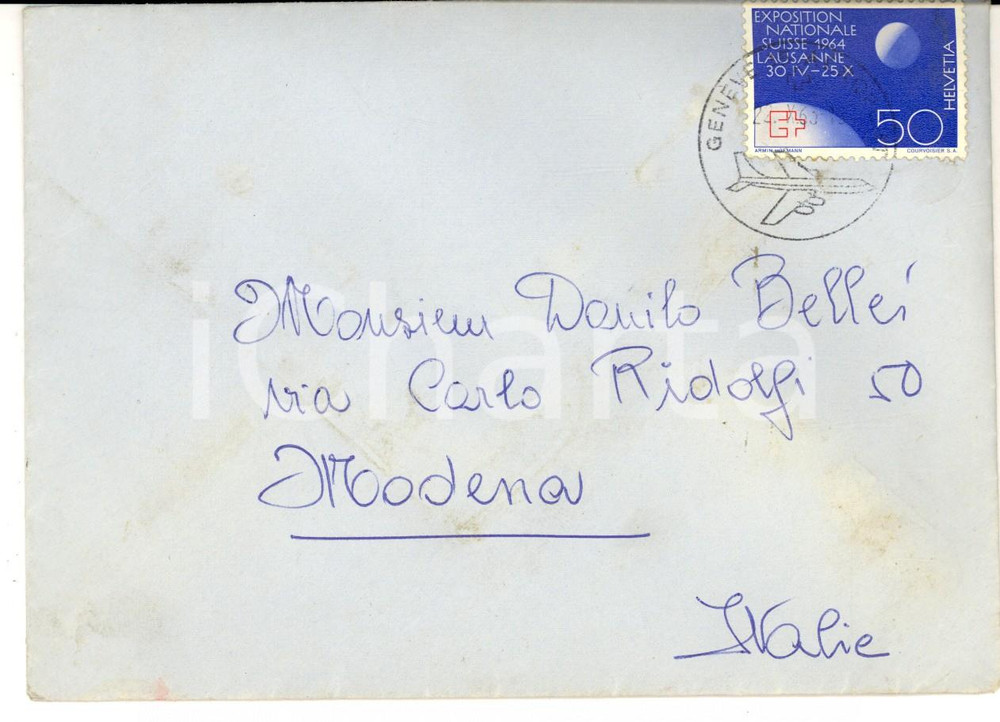 EXPOSITION
NATIONALE
SUISSE 1964
LAUSANNE
30 IV – 25 X
HELVETIA
50
COURVOISIER S.A.
GENÈVE
Monsieur Danilo Bellei
via Carlo Ridolfi 50
Modena
Italie
iCharta